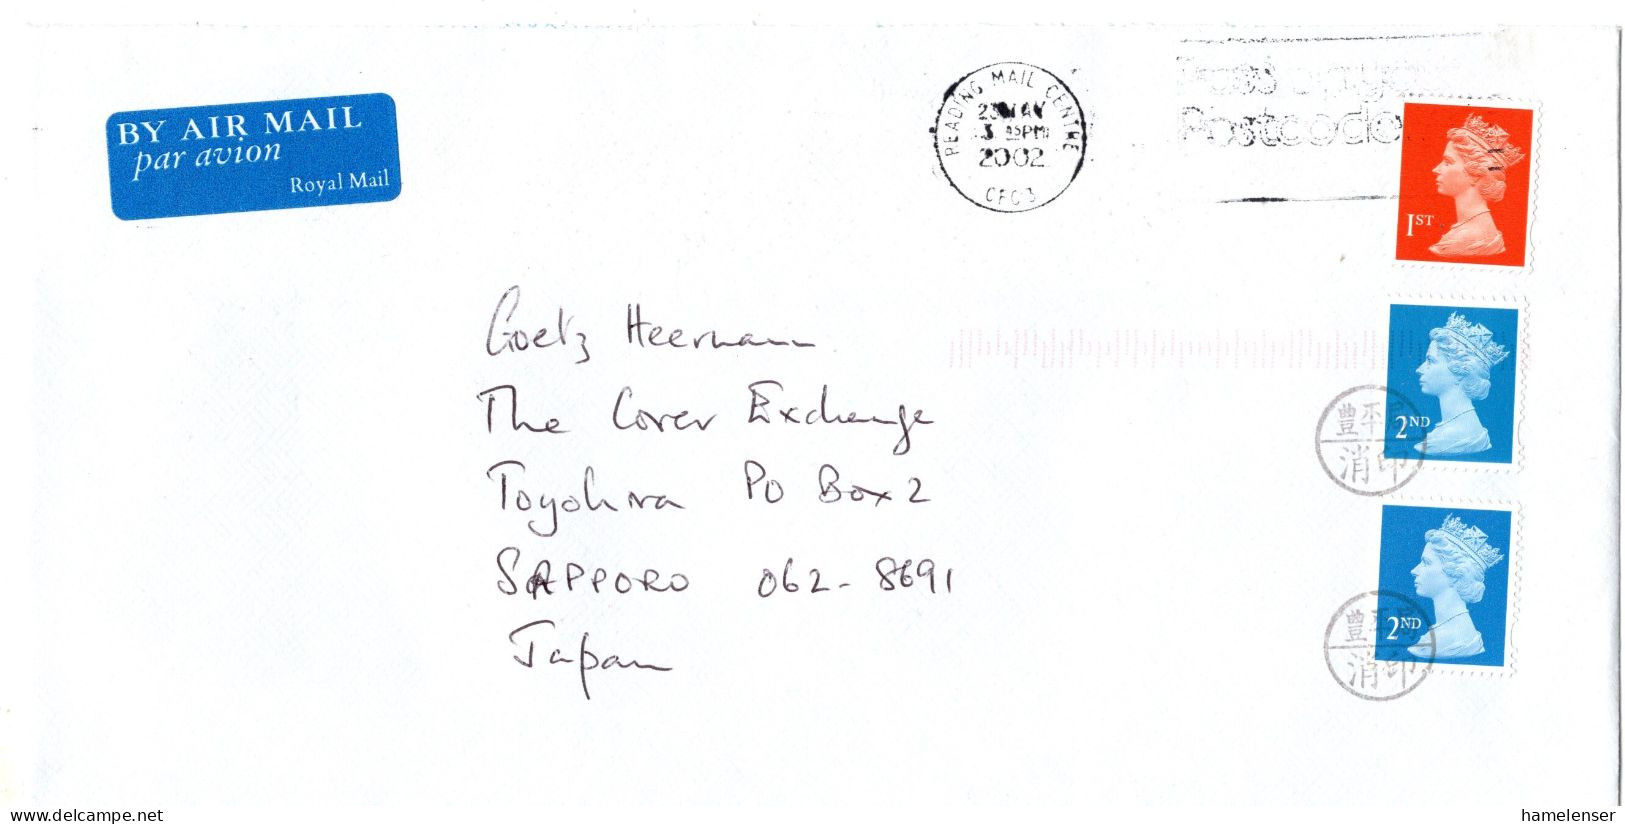 BY AIR MAIL
par avion
Royal Mail
READING MAIL CENTRE
2002
Postcode
1ST
Goetz Heermann
The Cover Exchange
Toyohira PO Box 2
SAPPORO 062-8691
Japan
2ND
豊平局
消印
2ND
豊平局
消印
www.delcampe.net
hamelenser